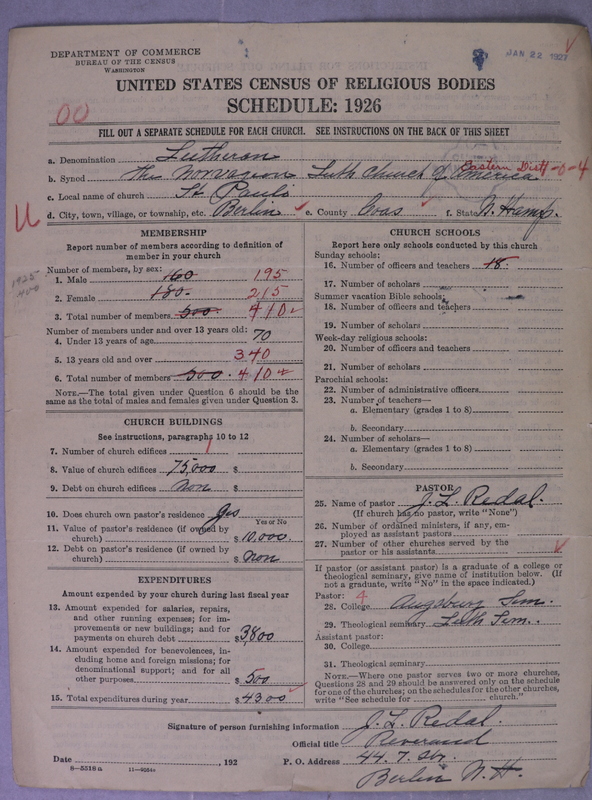 DEPARTMENT OF COMMERCE
BUREAU OF THE CENSUS
WASHINGTON
JAN 22 1927
UNITED STATES CENSUS OF RELIGIOUS BODIES
SCHEDULE: 1926
00
FILL OUT A SEPARATE SCHEDULE FOR EACH CHURCH. SEE INSTRUCTIONS ON THE BACK OF THIS SHEET
a. Denomination Lutheran
b. Synod The Norvagian Luth Church of America Eastern Dist -0-4
c. Local name of church St Pauli
d. City, town, village, or township, etc. Berlin e. County Coas f. State N. Hamp.
U
1925
400
MEMBERSHIP
Report number of members according to definition of member in your church
Number of members, by sex:
1. Male 160 195
2. Female 180 215
3. Total number of members 500 410
Number of members under and over 13 years old:
4. Under 13 years of age 70
5. 13 years old and over 340
6. Total number of members 500 410
NOTE.—The total given under Question 6 should be
same as the total of males and females given under Question 3.
CHURCH BUILDINGS
See instructions, paragraphs 10 to 12
7. Number of church edifices 1
8. Value of church edifices 75,000 $
9. Debt on church edifices Non $
10. Does church own pastor's residence? Yes
Yes or No
11. Value of pastor's residence (if owned by
church) $ 10,000
12. Debt on pastor's residence (if owned by
church) $ Non
EXPENDITURES
Amount expended by your church during last fiscal year
13. Amount expended for salaries, repairs,
and other running expenses; for im-
provements or new buildings; and for
payments on church debt $3,800
14. Amount expended for benevolences, in-
cluding home and foreign missions; for
denominational support; and for all
other purposes $ 500
15. Total expenditures during year $ 4300
CHURCH SCHOOLS
Report here only schools conducted by this church
Sunday schools:
16. Number of officers and teachers 18
17. Number of scholars
Summer vacation Bible schools:
18. Number of officers and teachers
19. Number of scholars
Week-day religious schools:
20. Number of officers and teachers
21. Number of scholars
Parochial schools:
22. Number of administrative officers
23. Number of teachers—
a. Elementary (grades 1 to 8)
b. Secondary
24. Number of scholars—
a. Elementary (grades 1 to 8)
b. Secondary
PASTOR
25. Name of pastor J. L. Redal.
(If church has no pastor, write "None")
26. Number of ordained ministers, if any, em-
ployed as assistant pastors
27. Number of other churches served by the
pastor or his assistants
If pastor (or assistant pastor) is a graduate of a college or
theological seminary, give name of institution below. (If
not a graduate, write "No" in the space indicated.)
Pastor: 4
28. College Augsburg Sem.
29. Theological seminary Luth Sem.
Assistant pastor:
30. College
31. Theological seminary
NOTE.—Where one pastor serves two or more churches,
Questions 28 and 29 should be answered only on the schedule
for one of the churches; on the schedules for the other churches,
write "See schedule for church."
Signature of person furnishing information J. L. Redal.
Official title Reverand
Date , 192 P. O. Address 44. 7. Str.
8-5518 a
Berlin N. H.